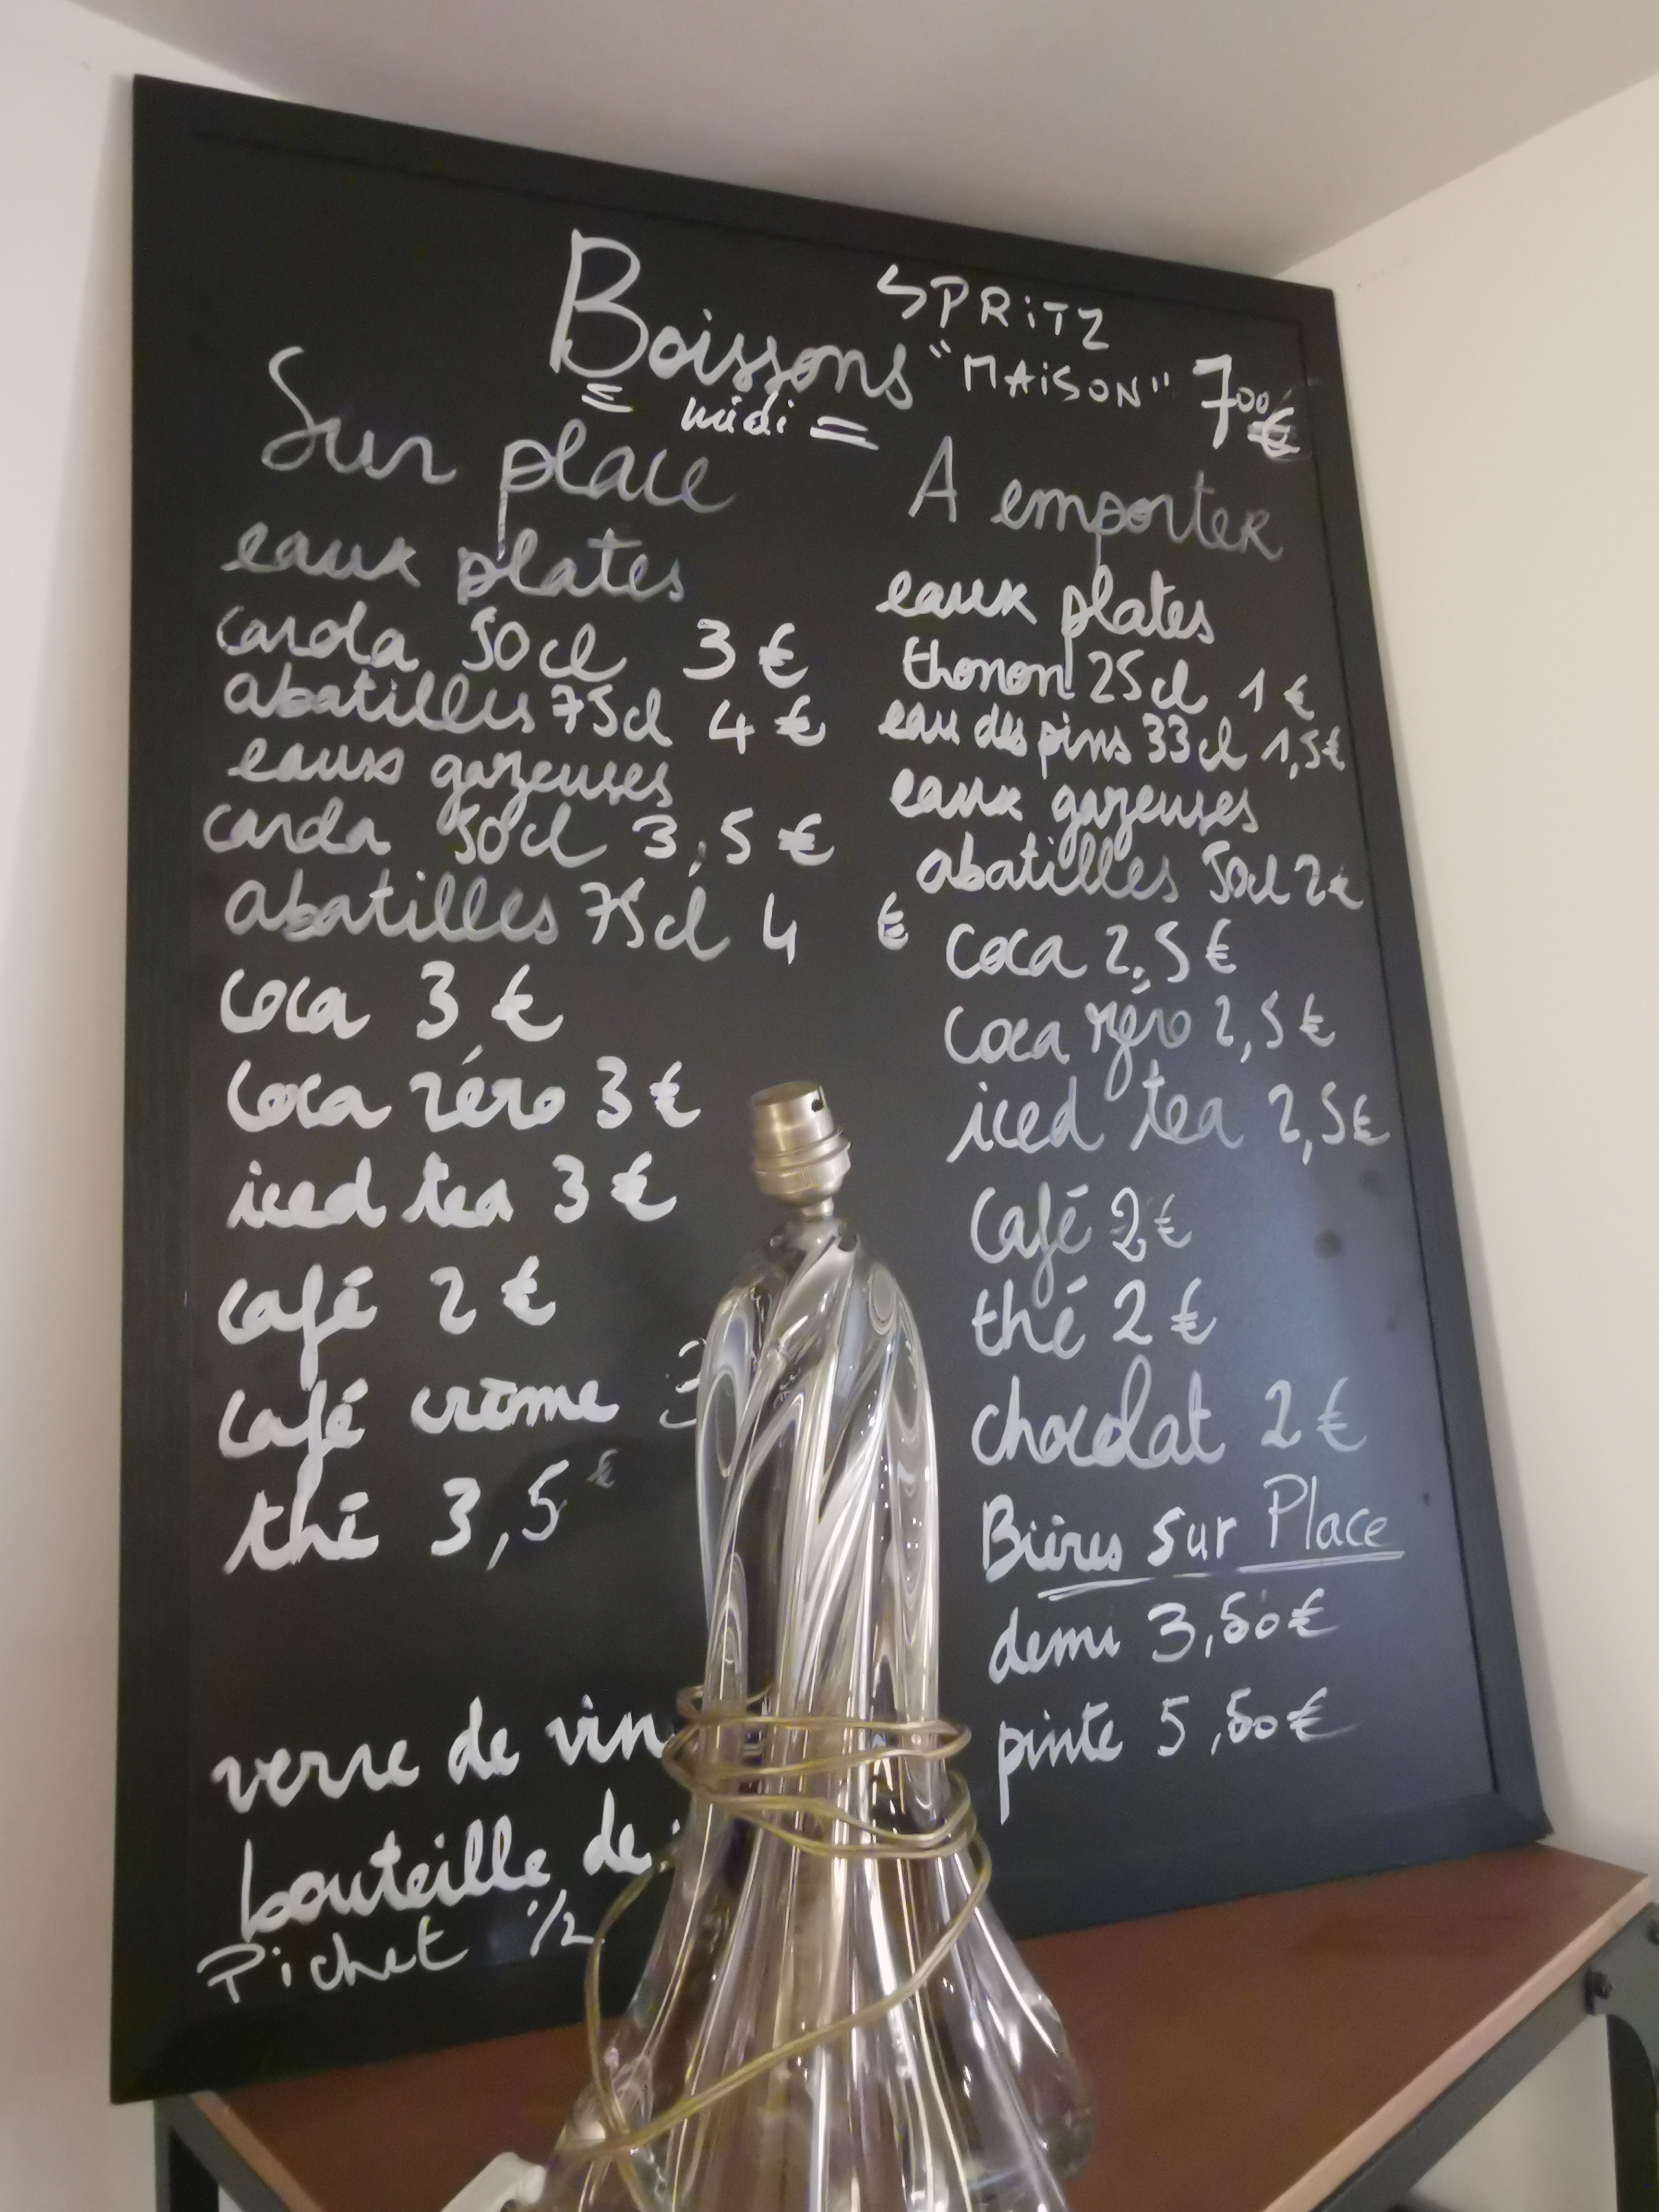 Boissons
midi
SPRiTZ
"MAiSON" 7,00€
Sur place
eaux plates
carola 50cl 3 €
abatilles 75cl 4 €
eaux gazeuses
carola 50cl 3,5 €
abatilles 75cl 4 €
coca 3 €
coca zéro 3 €
iced tea 3 €
café 2 €
café crème 3
thé 3,5 €
verre de vin
bouteille de
Pichet 1/2
A emporter
eaux plates
thonon 25cl 1 €
eau des pins 33cl 1,5€
eaux gazeuses
abatilles 50cl 2€
coca 2,5 €
coca zéro 2,5 €
iced tea 2,5€
Café 2€
thé 2 €
chocolat 2 €
Bières sur Place
demi 3,50€
pinte 5,50€